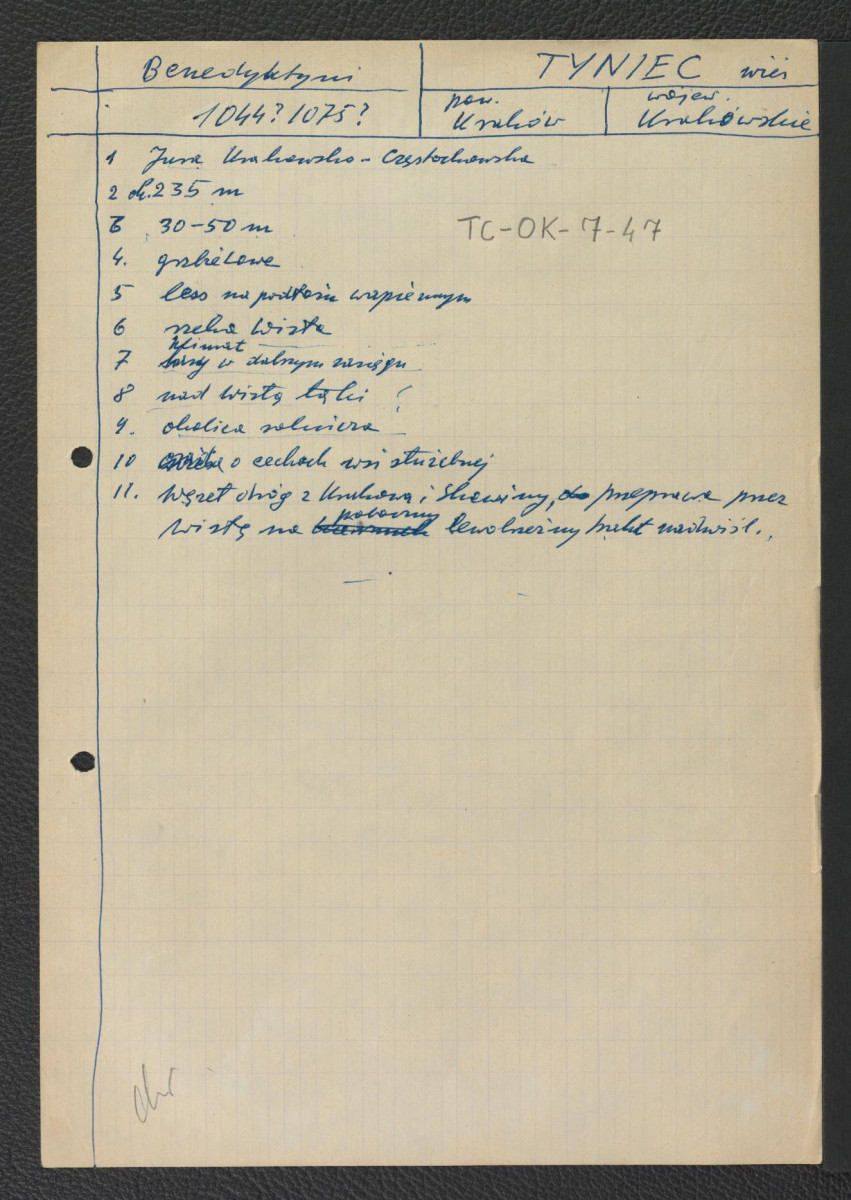 Benedyktyni
TYNIEC wieś
1044? 1075?
pow. Kraków
wojew. Krakowskie
1 Jura Krakowsko-Częstochowska
2 ok. 235 m
3 30-50 m
TC-OK-7-47
4. grzbietowe
5 less na podłożu wapiennym
6 rzeka Wisła
klimat
7 w dalszym zasięgu
8 nad Wisłą łąki
9. okolica rolnicza
10 o cechach wsi służebnej
11. węzeł dróg z Krakowa i Skawiny, przeprawa przez
poboczny
Wisłę na lewobrzeżny trakt nadwiśl.